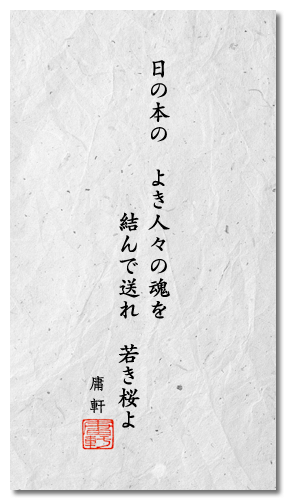 日の本の　よき人々の魂を
結んで送れ　若き桜よ
庸軒